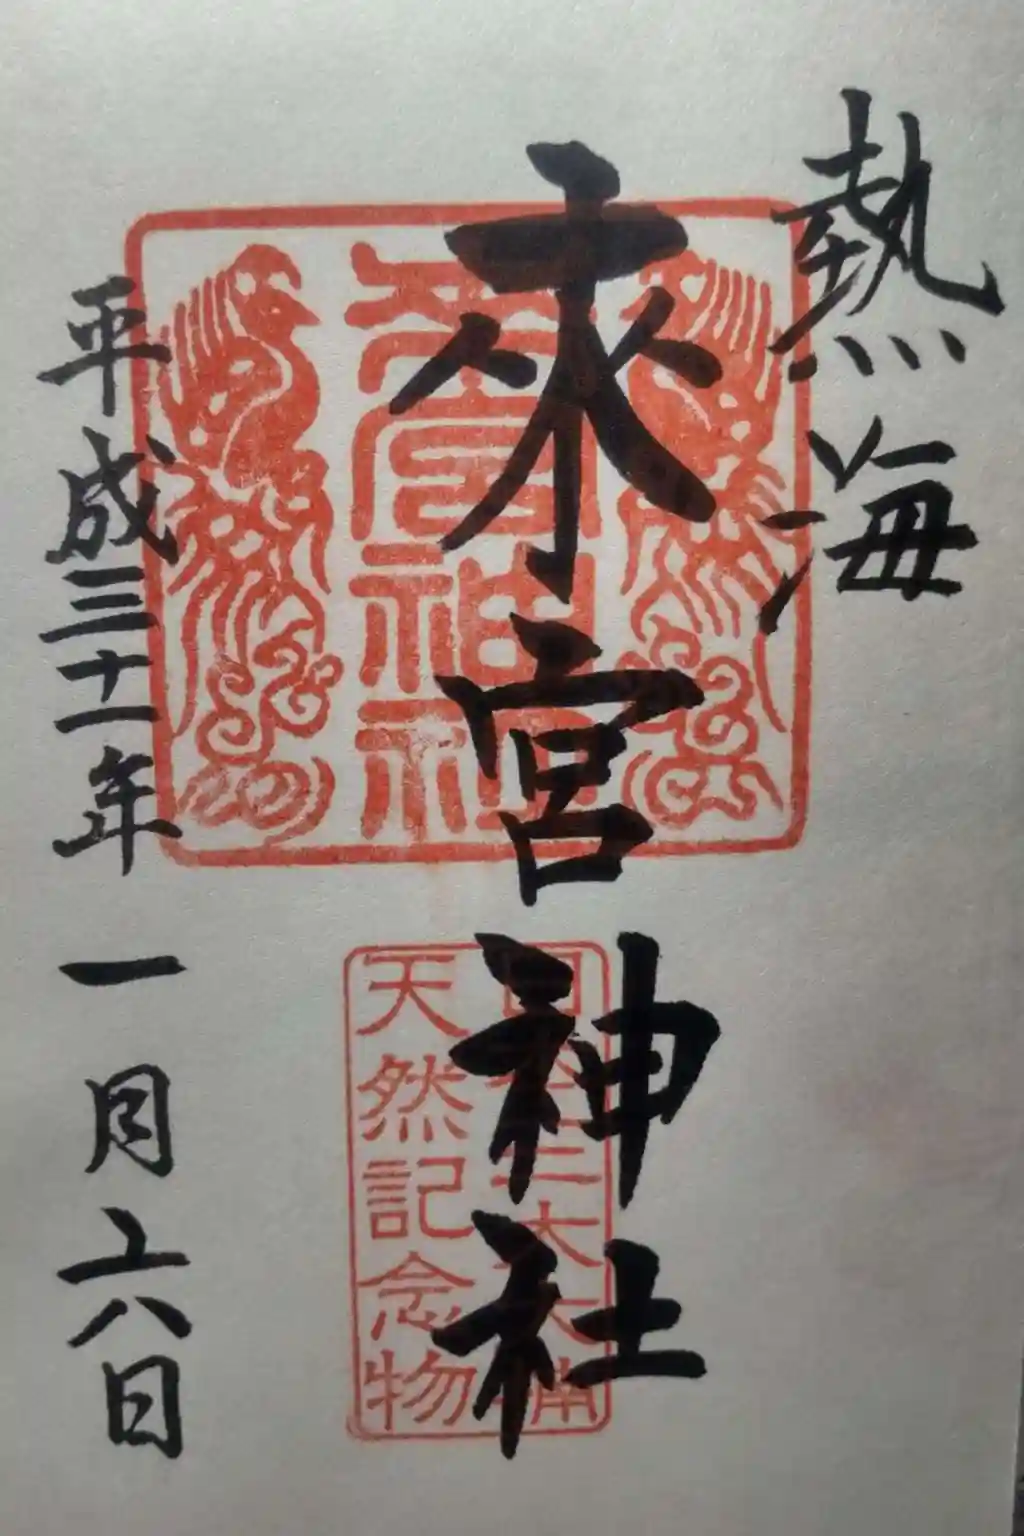 熱海
來宮神社
來宮神社
日本三大大楠
天然記念物
平成三十一年一月六日